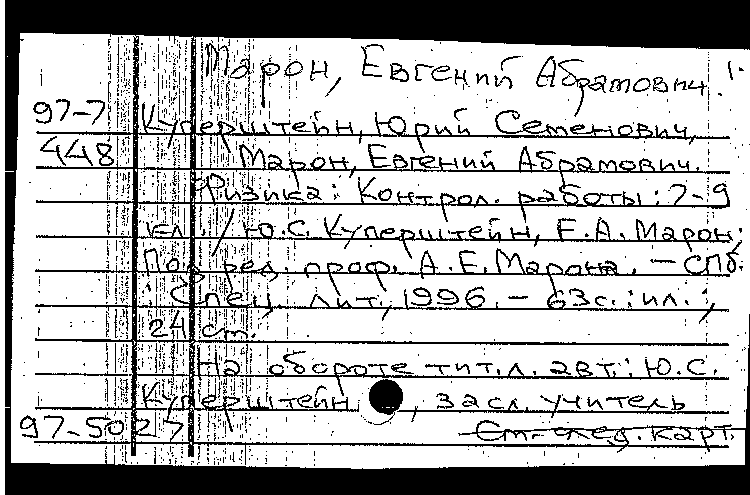 Марон, Евгений Абрамович. 1.
97-7 Куперштейн, Юрий Семенович,
448 Марон, Евгений Абрамович.
Физика: Контрол. работы: 7-9
кл. / Ю.С. Куперштейн, Е.А. Марон;
Под ред. проф. А.Е. Марона. — СПб.
: Спец. лит., 1996. — 63с.: ил.;
24 см.
На обороте тит.л. авт.: Ю.С.
Куперштейн , засл. учитель
97-5027 См. след. карт.